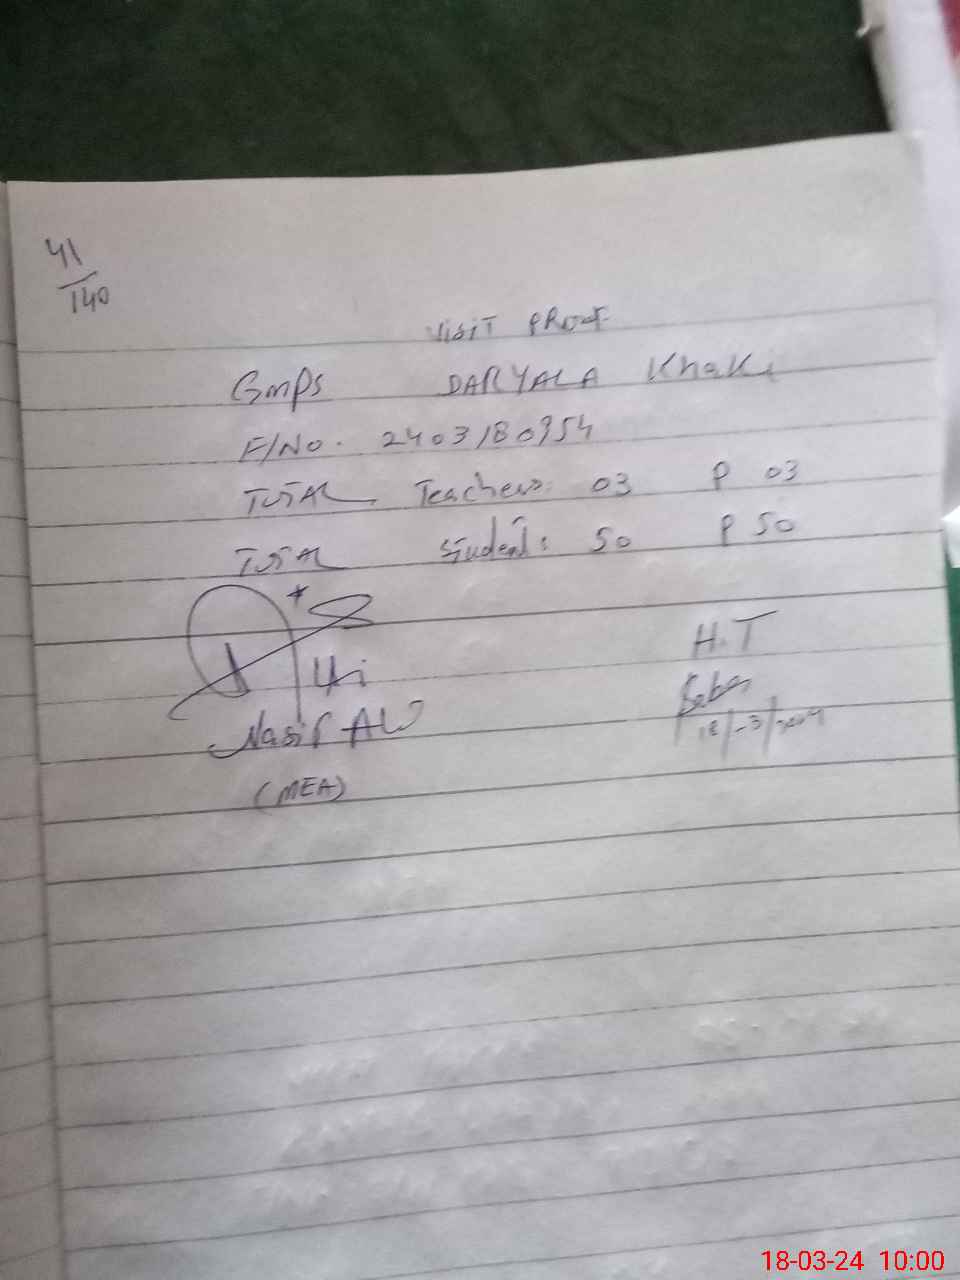 41/140
Visit Proof
GmPS DARYALA Khaki
F/No. 2403180954
TOTAL Teachers: 03 P 03
TOTAL Students: 50 P 50
H.T
Nasir Ali
18/-3/2024
(MEA)
18-03-24 10:00